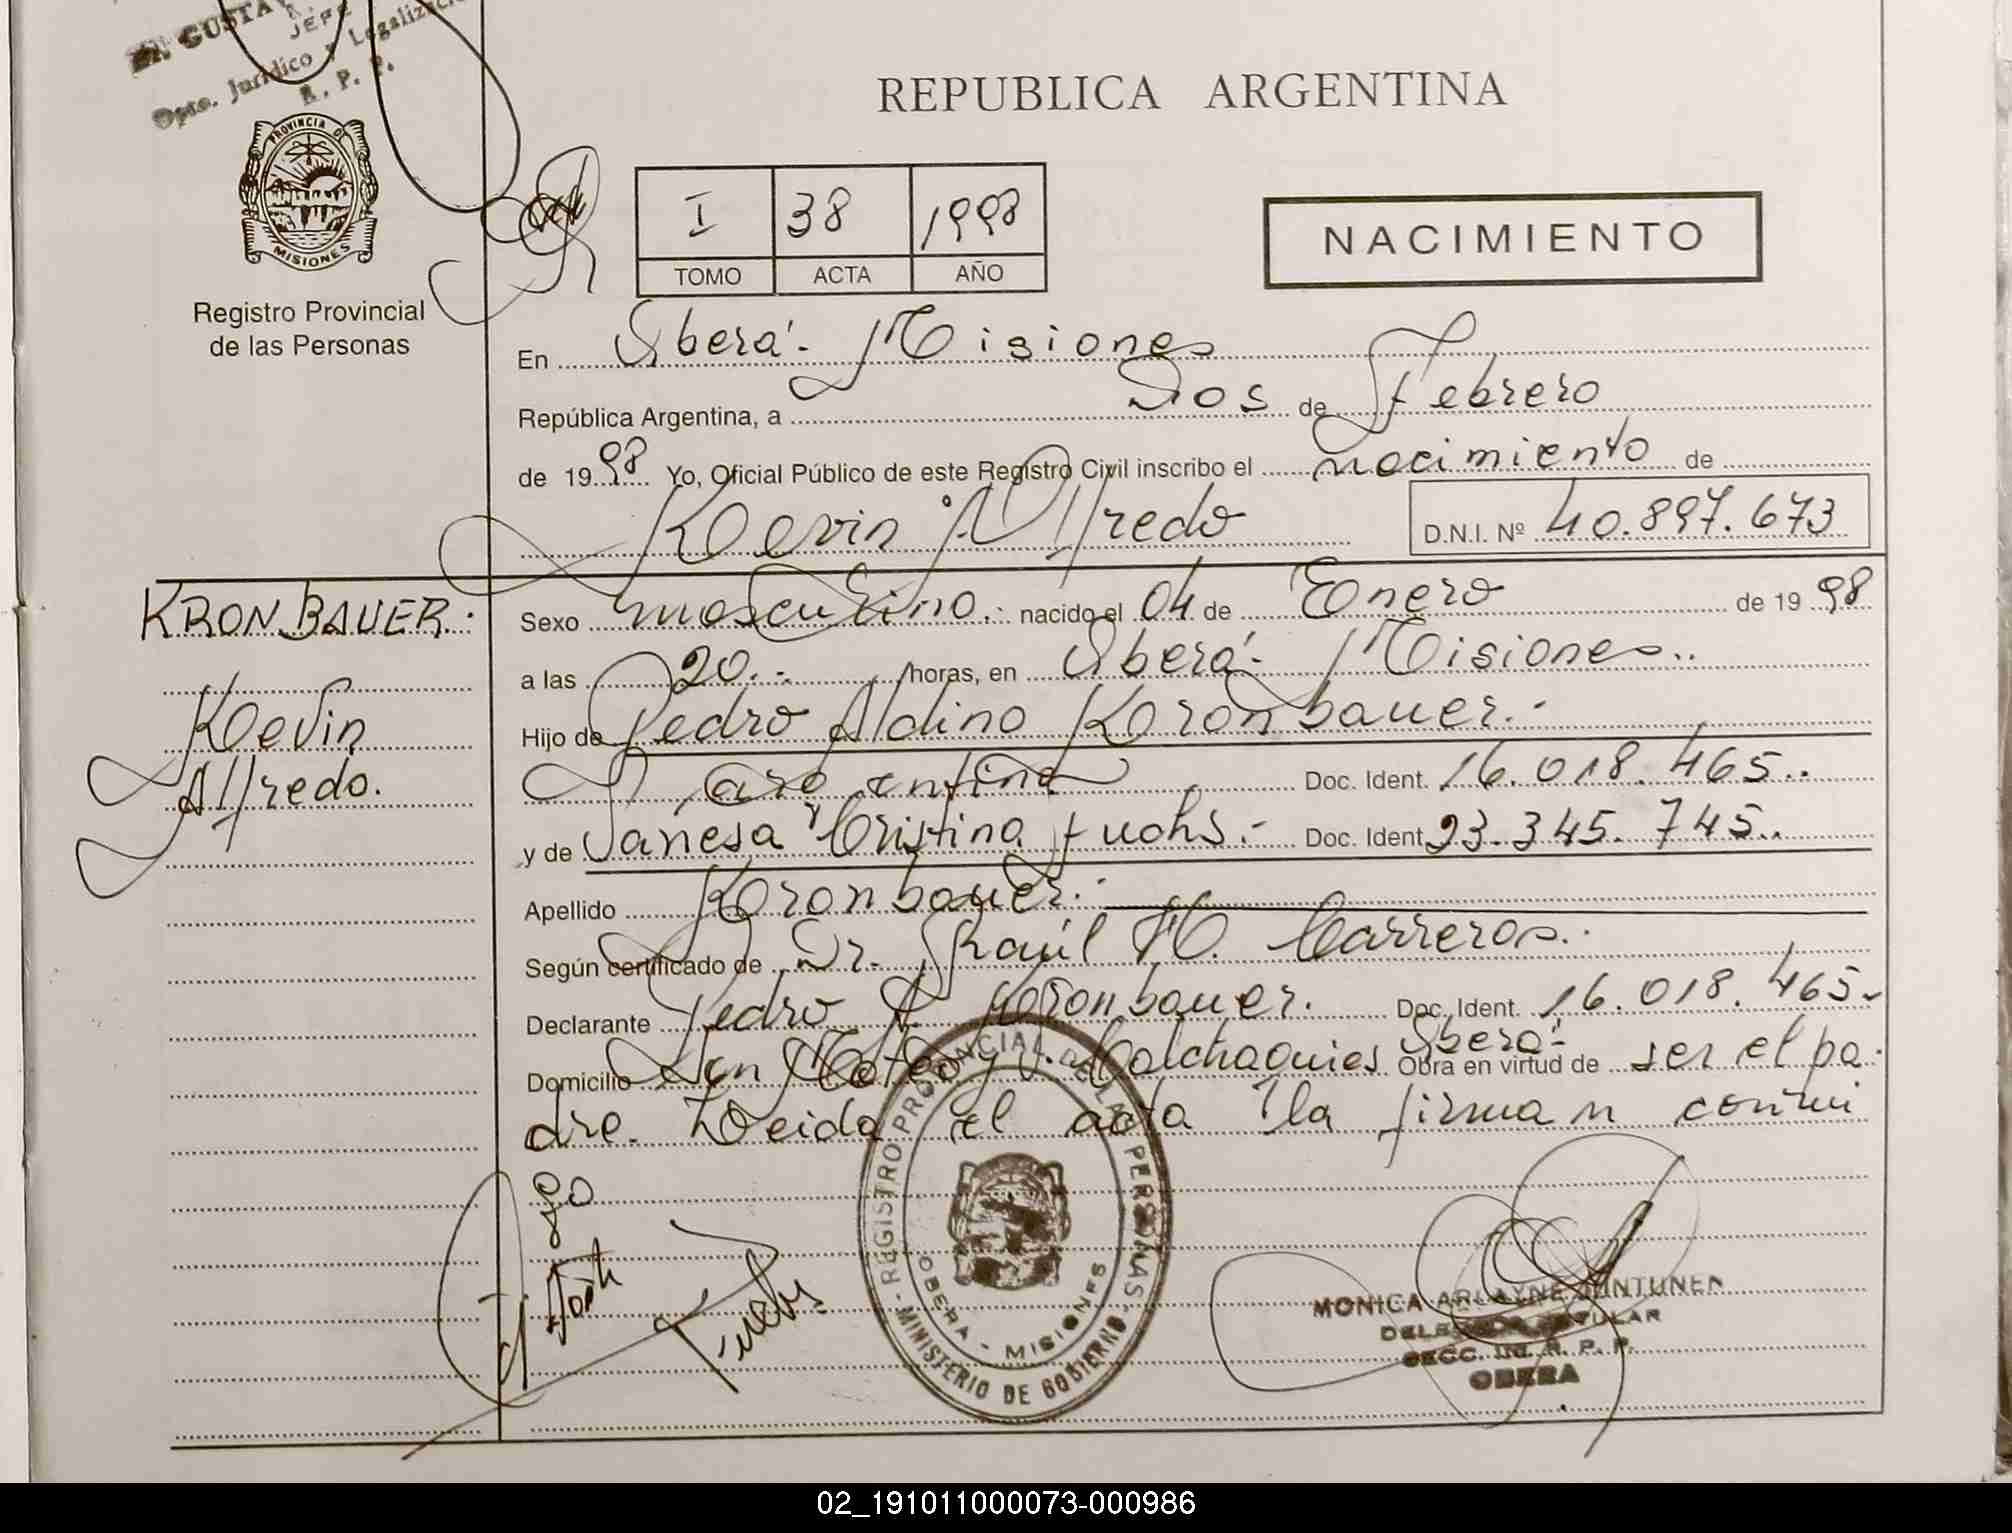 GUSTA
JEFE
Dpto. Jurídico y Legalizac
R. P. P.
PROVINCIA DE
MISIONES
Registro Provincial
de las Personas
REPUBLICA ARGENTINA
I 38 1998
TOMO ACTA AÑO
NACIMIENTO
En Oberá - Misiones
República Argentina, a Dos de Febrero
de 1998 Yo, Oficial Público de este Registro Civil inscribo el nacimiento de
Kevin Alfredo D.N.I. Nº 40.897.673
KRONBAUER.
Kevin
Alfredo.
Sexo masculino. nacido el 04 de Enero de 1998
a las 20.- horas, en Oberá - Misiones..
Hijo de Pedro Aldino Kronbauer.-
argentina Doc. Ident. 16.018.465..
y de Vanesa Cristina Fuchs.- Doc. Ident. 23.345.745..
Apellido Kronbauer.-
Según certificado de Dr. Raúl H. Carreros.-
Declarante Pedro A. Kronbauer. Doc. Ident. 16.018.465.-
Domicilio San Mateo y Calchaquies Oberá - Obra en virtud de ser el pa-
dre. Leida el acta la firman conmi
go
REGISTRO PROVINCIAL DE LAS PERSONAS
OBERA - MISIONES
MINISTERIO DE GOBIERNO
MONICA ARLAYNE
DELEGADA TITULAR
SECC. R. P. P.
OBERA
02_191011000073-000986